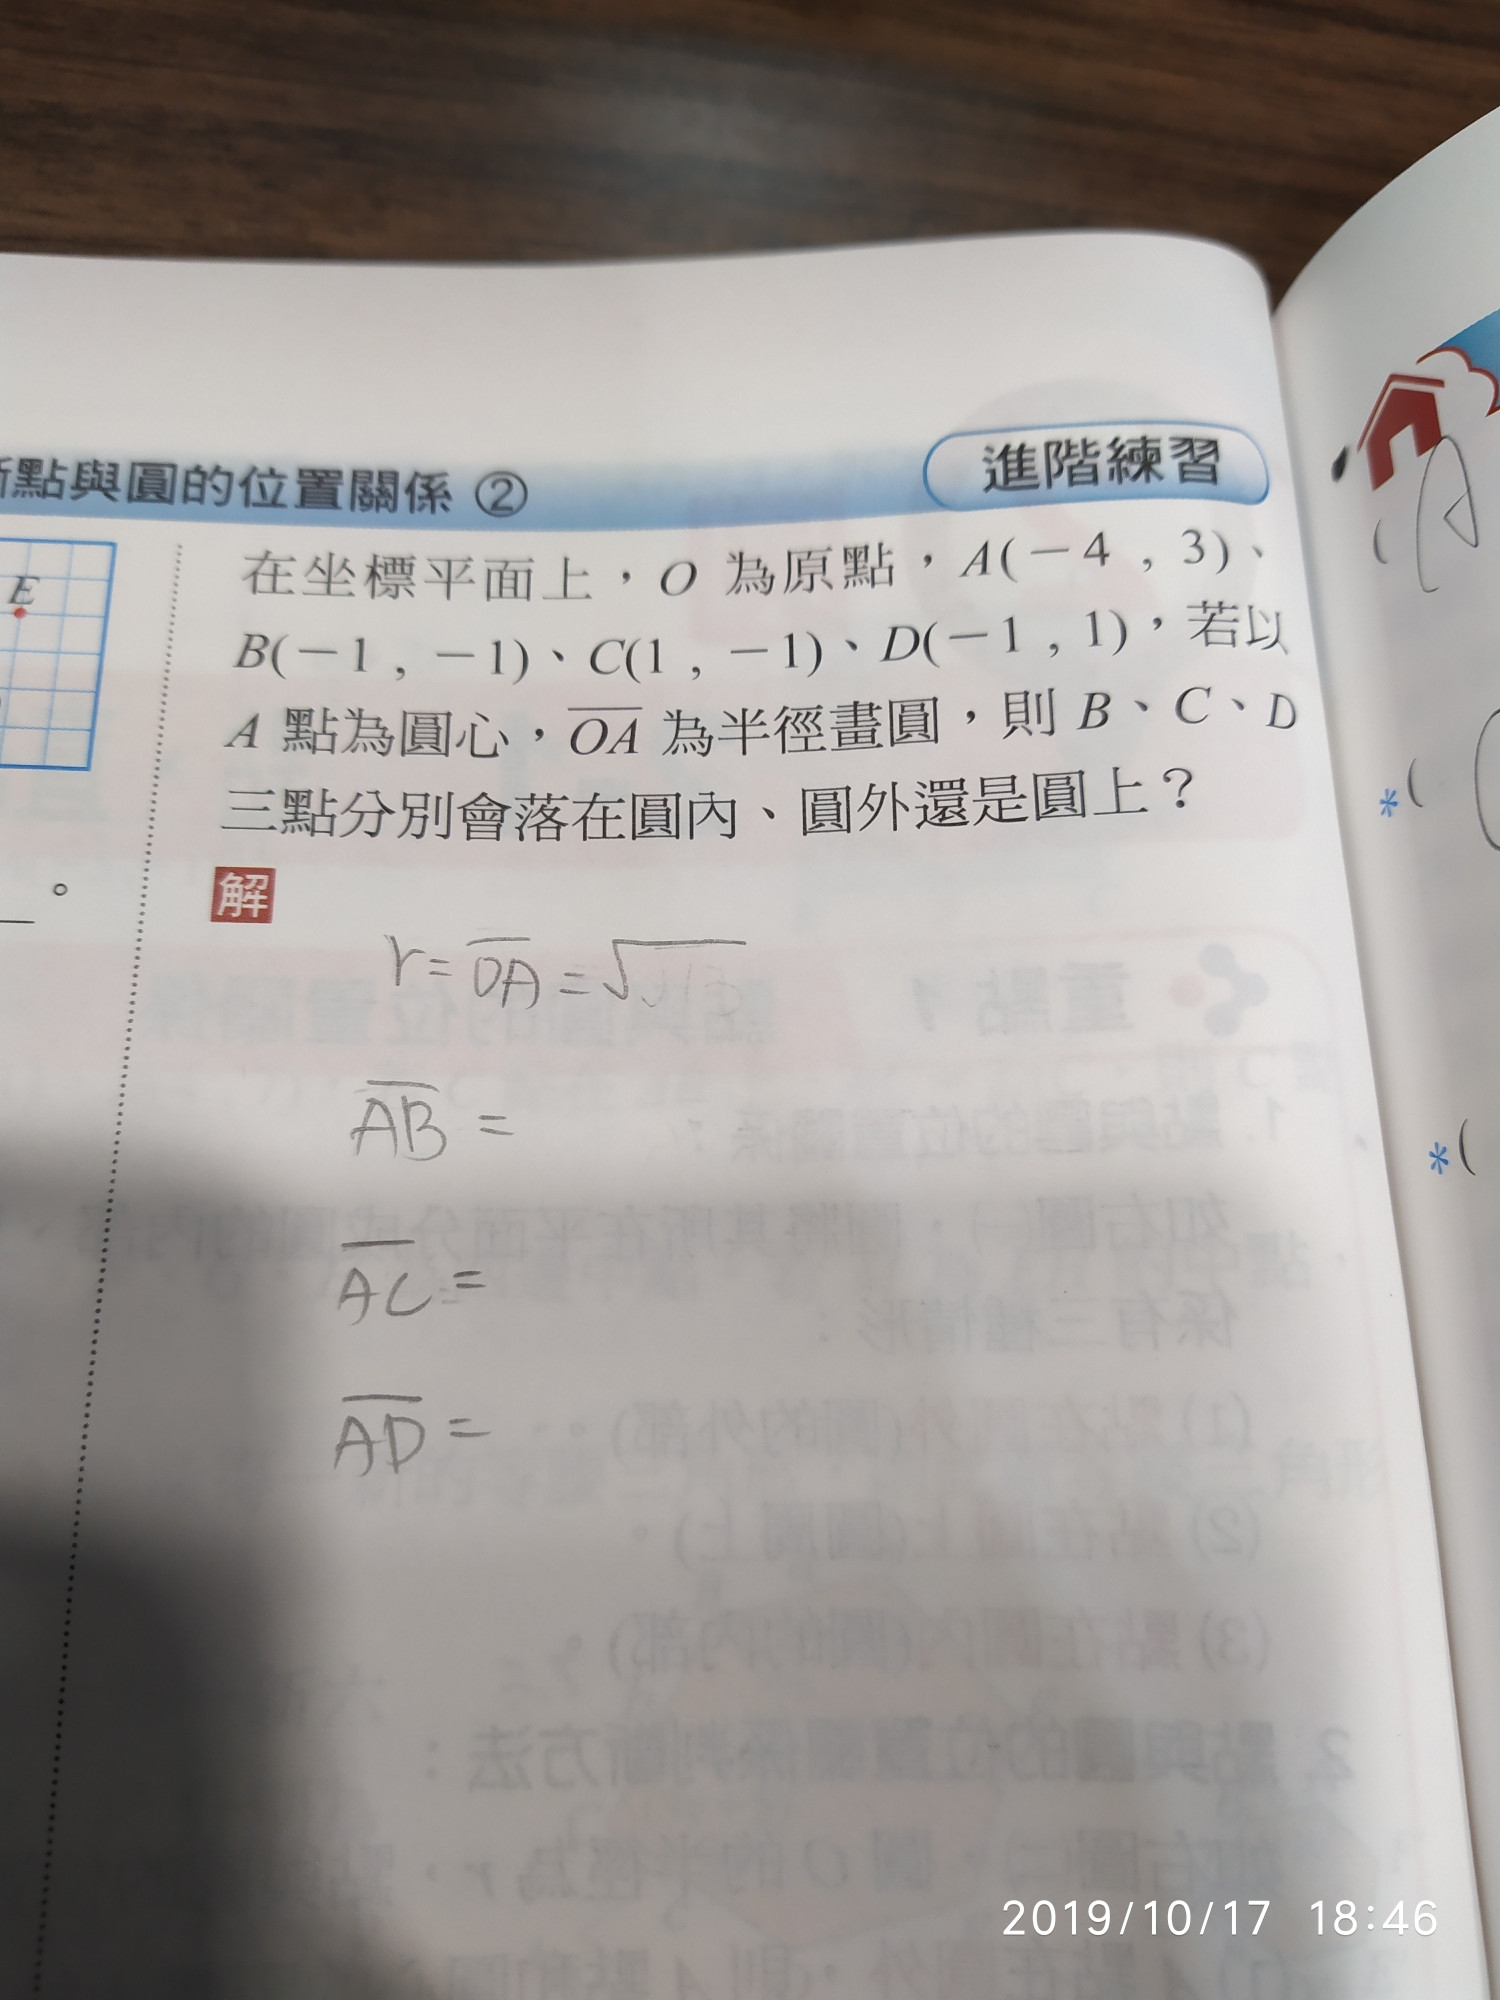 斷點與圓的位置關係 ②
進階練習
E
在坐標平面上，O 為原點，A(－4 , 3)、
B(－1 , －1)、C(1 , －1)、D(－1 , 1)，若以
A 點為圓心，OA 為半徑畫圓，則 B、C、D
三點分別會落在圓內、圓外還是圓上？
。
解
r = OA = √
AB =
AC =
AD =
*(
*(
2019/10/17 18:46